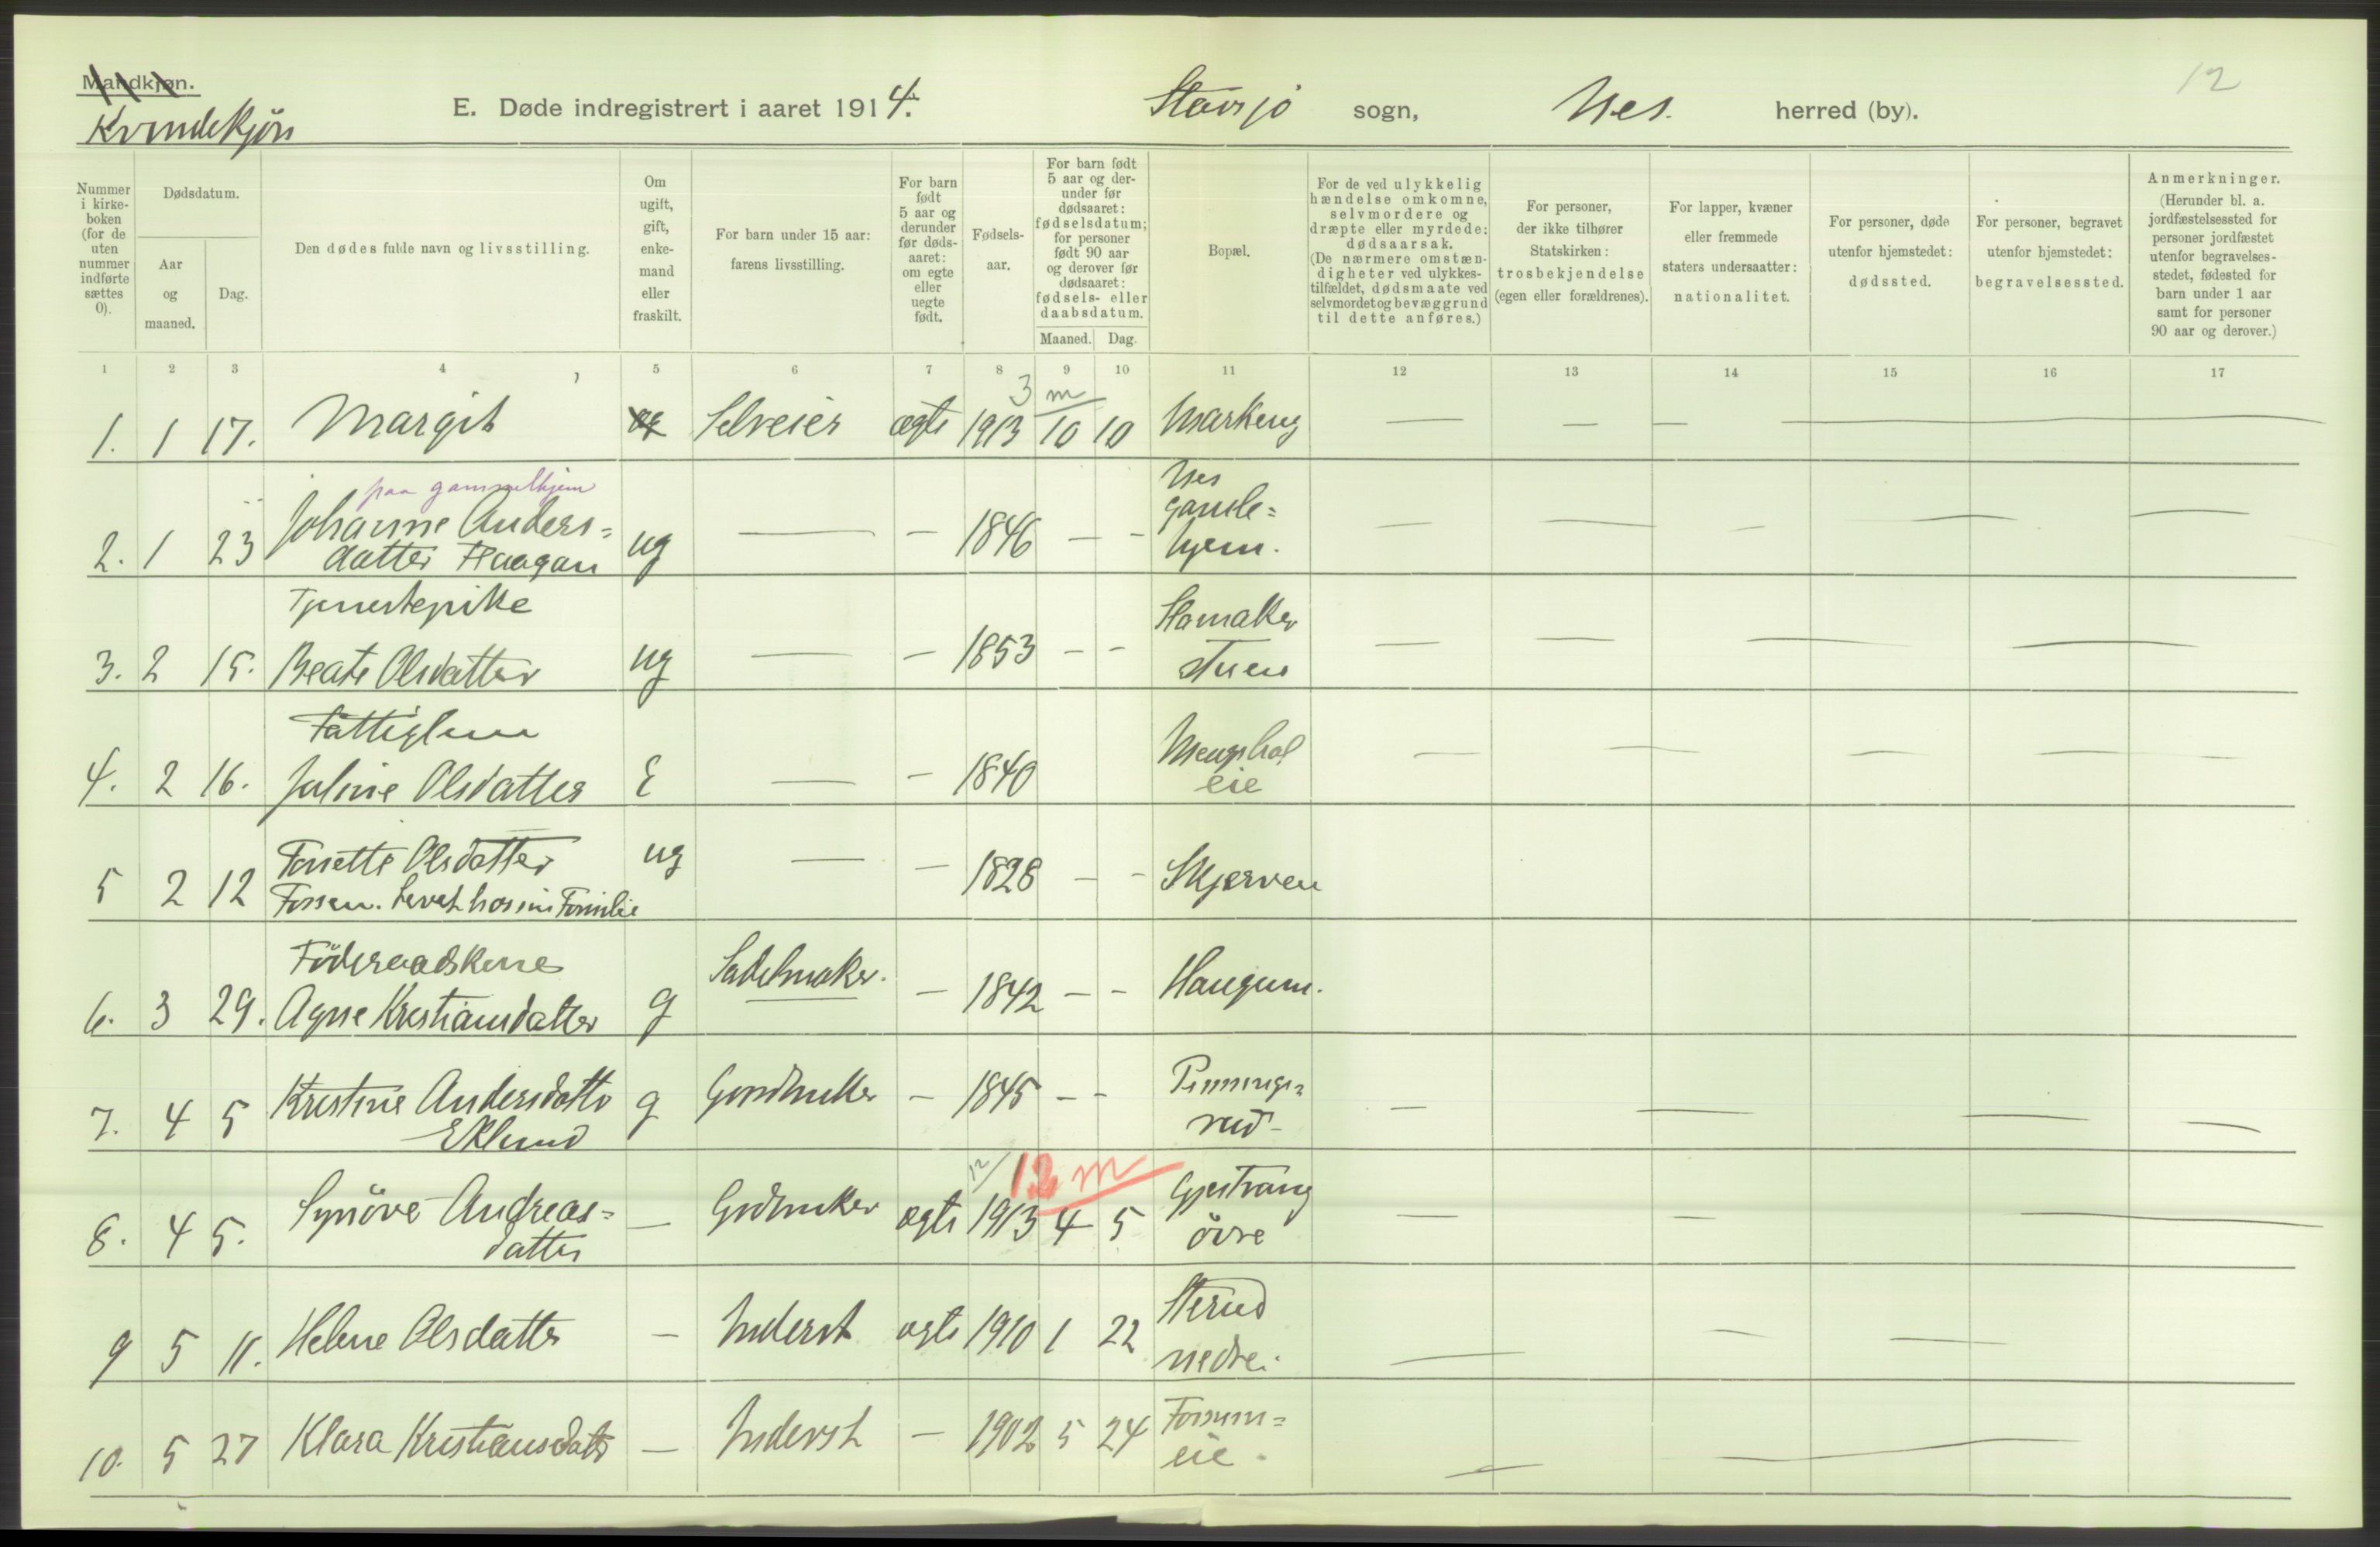 Mandkjøn.
Kvindekjøn
E. Døde indregistrert i aaret 1914. Stavsjø sogn, Nes. herred (by).
12
Nummer i kirkeboken (for de uten nummer indførte sættes 0).
Dødsdatum.
Aar og maaned.
Dag.
Den dødes fulde navn og livsstilling.
Om ugift, gift, enkemand eller fraskilt.
For barn under 15 aar: farens livsstilling.
For barn født 5 aar og derunder før dødsaaret: om egte eller uegte født.
Fødselsaar.
For barn født 5 aar og derunder før dødsaaret: fødselsdatum; for personer født 90 aar og derover før dødsaaret: fødsels- eller daabsdatum.
Maaned. Dag.
Bopæl.
For de ved ulykkelig hændelse omkomne, selvmordere og dræpte eller myrdede: dødsaarsak. (De nærmere omstændigheter ved ulykkestilfældet, dødsmaate ved selvmordet og bevæggrund til dette anføres.)
For personer, der ikke tilhører Statskirken: trosbekjendelse (egen eller forældrenes).
For lapper, kvæner eller fremmede staters undersaatter: nationalitet.
For personer, døde utenfor hjemstedet: dødssted.
For personer, begravet utenfor hjemstedet: begravelsessted.
Anmerkninger. (Herunder bl. a. jordfæstelsessted for personer jordfæstet utenfor begravelsesstedet, fødested for barn under 1 aar samt for personer 90 aar og derover.)
1 2 3 4 5 6 7 8 9 10 11 12 13 14 15 16 17
3 m
1. 1 17. Margit Selveier ægte 1913 10 10 Markeng — — — —
paa gammelhjem
Nes
Johanne Anders= gamle=
2. 1 23 datter Haagan ug — — 1846 — — hjem. — — — — —
Tjenestepike Hamaker
3. 2 15. Beate Olsdatter ug — — 1853 — — stuen — — — —
Fattiglem
4. 2 16. Juline Olsdatter E — — 1840 eie — — — — —
5 2 12 Tonette Olsdatter ug — — 1828 — — Skjerven
Fossen. Levet hos sin Familie
Föderaadskone
6. 3 29. Agne Kristiansdatter g Sadelmaker. — 1842 — — Haugum.
7. 4 5 Kristine Andersdatter g Gardbruker — 1845 — — Pinnings=
Eklund rud — — — —
12/ 12 m
8. 4 5. Synöve Andreas= — Grdbruker ægte 1913 4 5 Gjestvang
datter övre — — —
9 5 11. Helene Olsdatter — Inderst ægte 1910 1 22 Sterud
nedre. — — —
10. 5 27 Klara Kristiansdatter — Inderst — 1902 5 24 Fossum=
eie. — —